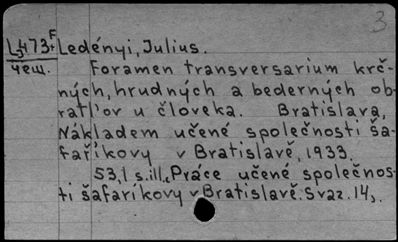 3
Ledényi, Julius.
чеш.
Foramen transversarium krč-
ných, hrudných a bederných ob-
ratľov u človeka. Bratislava,
Nákladem učené společnosti ša-
faříkovy v Bratislavě, 1933.
53,1 s.ill. (Práce učené společnos-
ti šafaríkovy v Bratislavě. Svaz. 14).